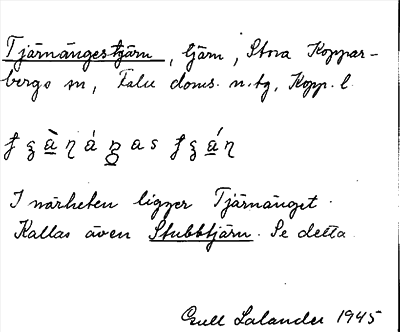 Tjärnängestjärn, tjärn, Stora Koppar-
bergs sn, Falu doms. n. tg, Kopp. l.
I närheten ligger Tjärnänget.
Kallas även Stubbtjärn. Se detta
Gull Salander 1945